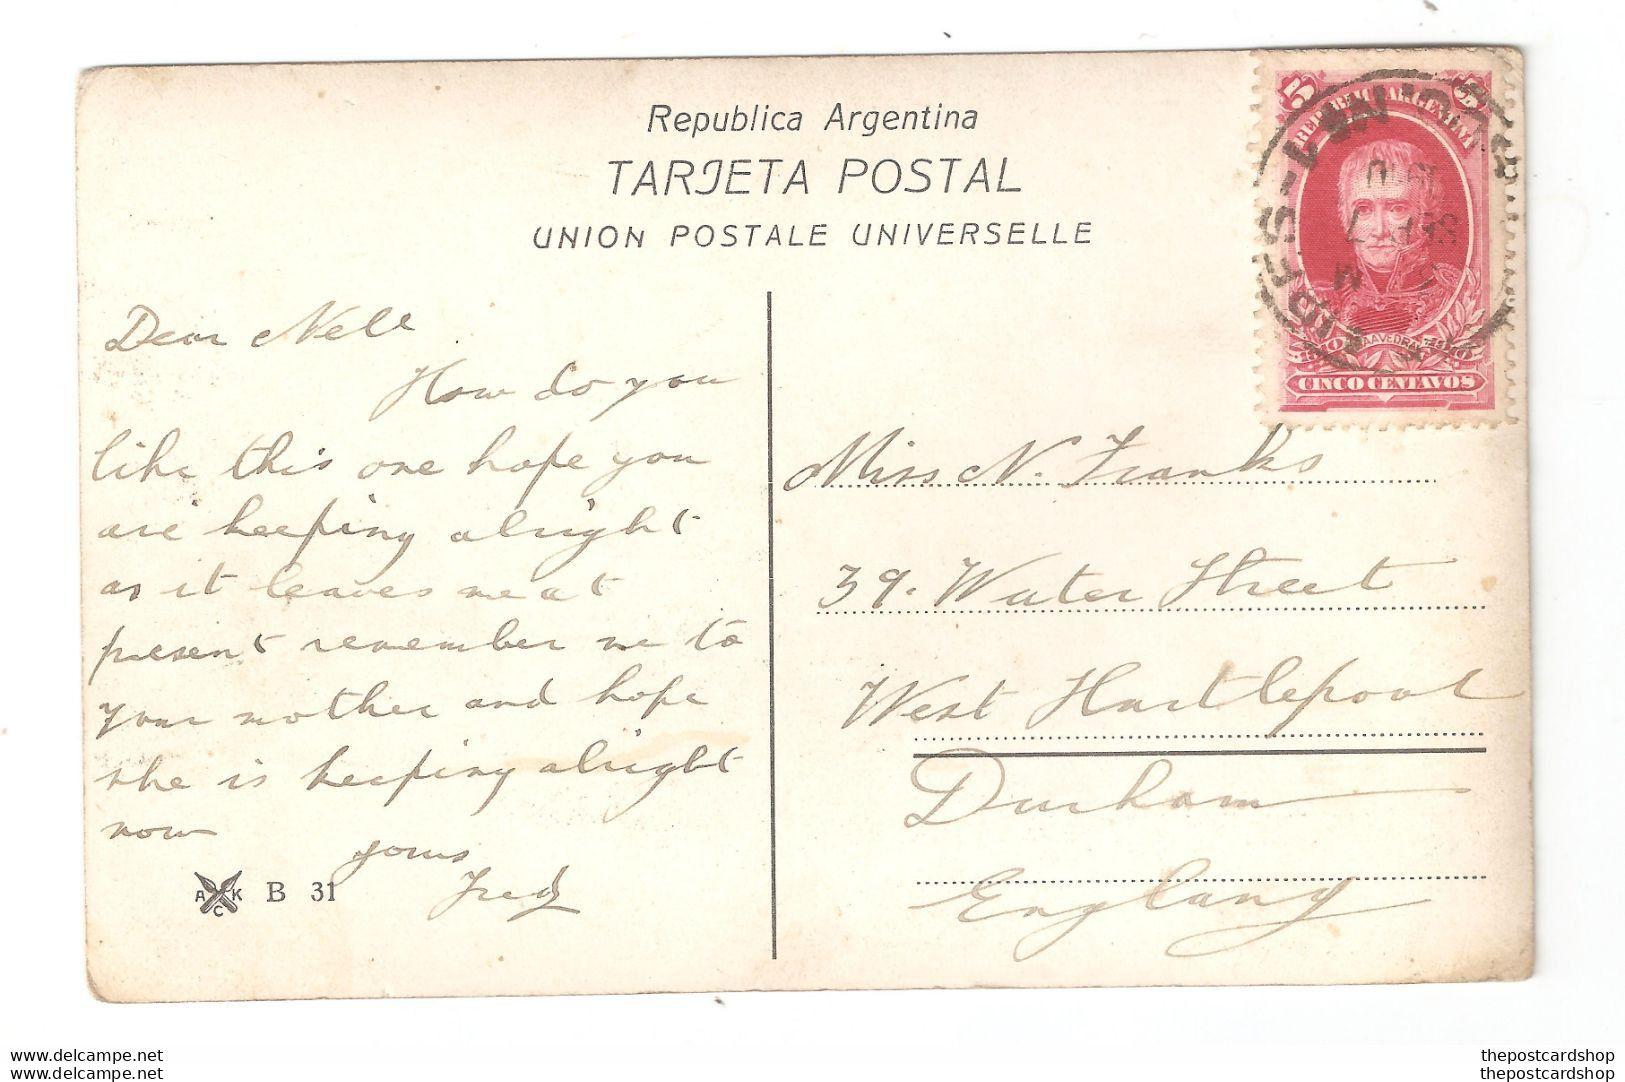 Republica Argentina
TARJETA POSTAL
UNION POSTALE UNIVERSELLE
5 5
REPUBLICA ARGENTINA
1810 SAAVEDRA 1910
CINCO CENTAVOS
SEP 7
1910
Dear Nell
How do you
like this one hope you
are keeping alright
as it leaves me at
present remember me to
your mother and hope
she is keeping alright
now
yours
Fred
A K C B 31
Miss N. Franks
39. Water Street
West Hartlepool
Durham
England
www.delcampe.net
www.delcampe.net
thepostcardshop
thepostcardshop